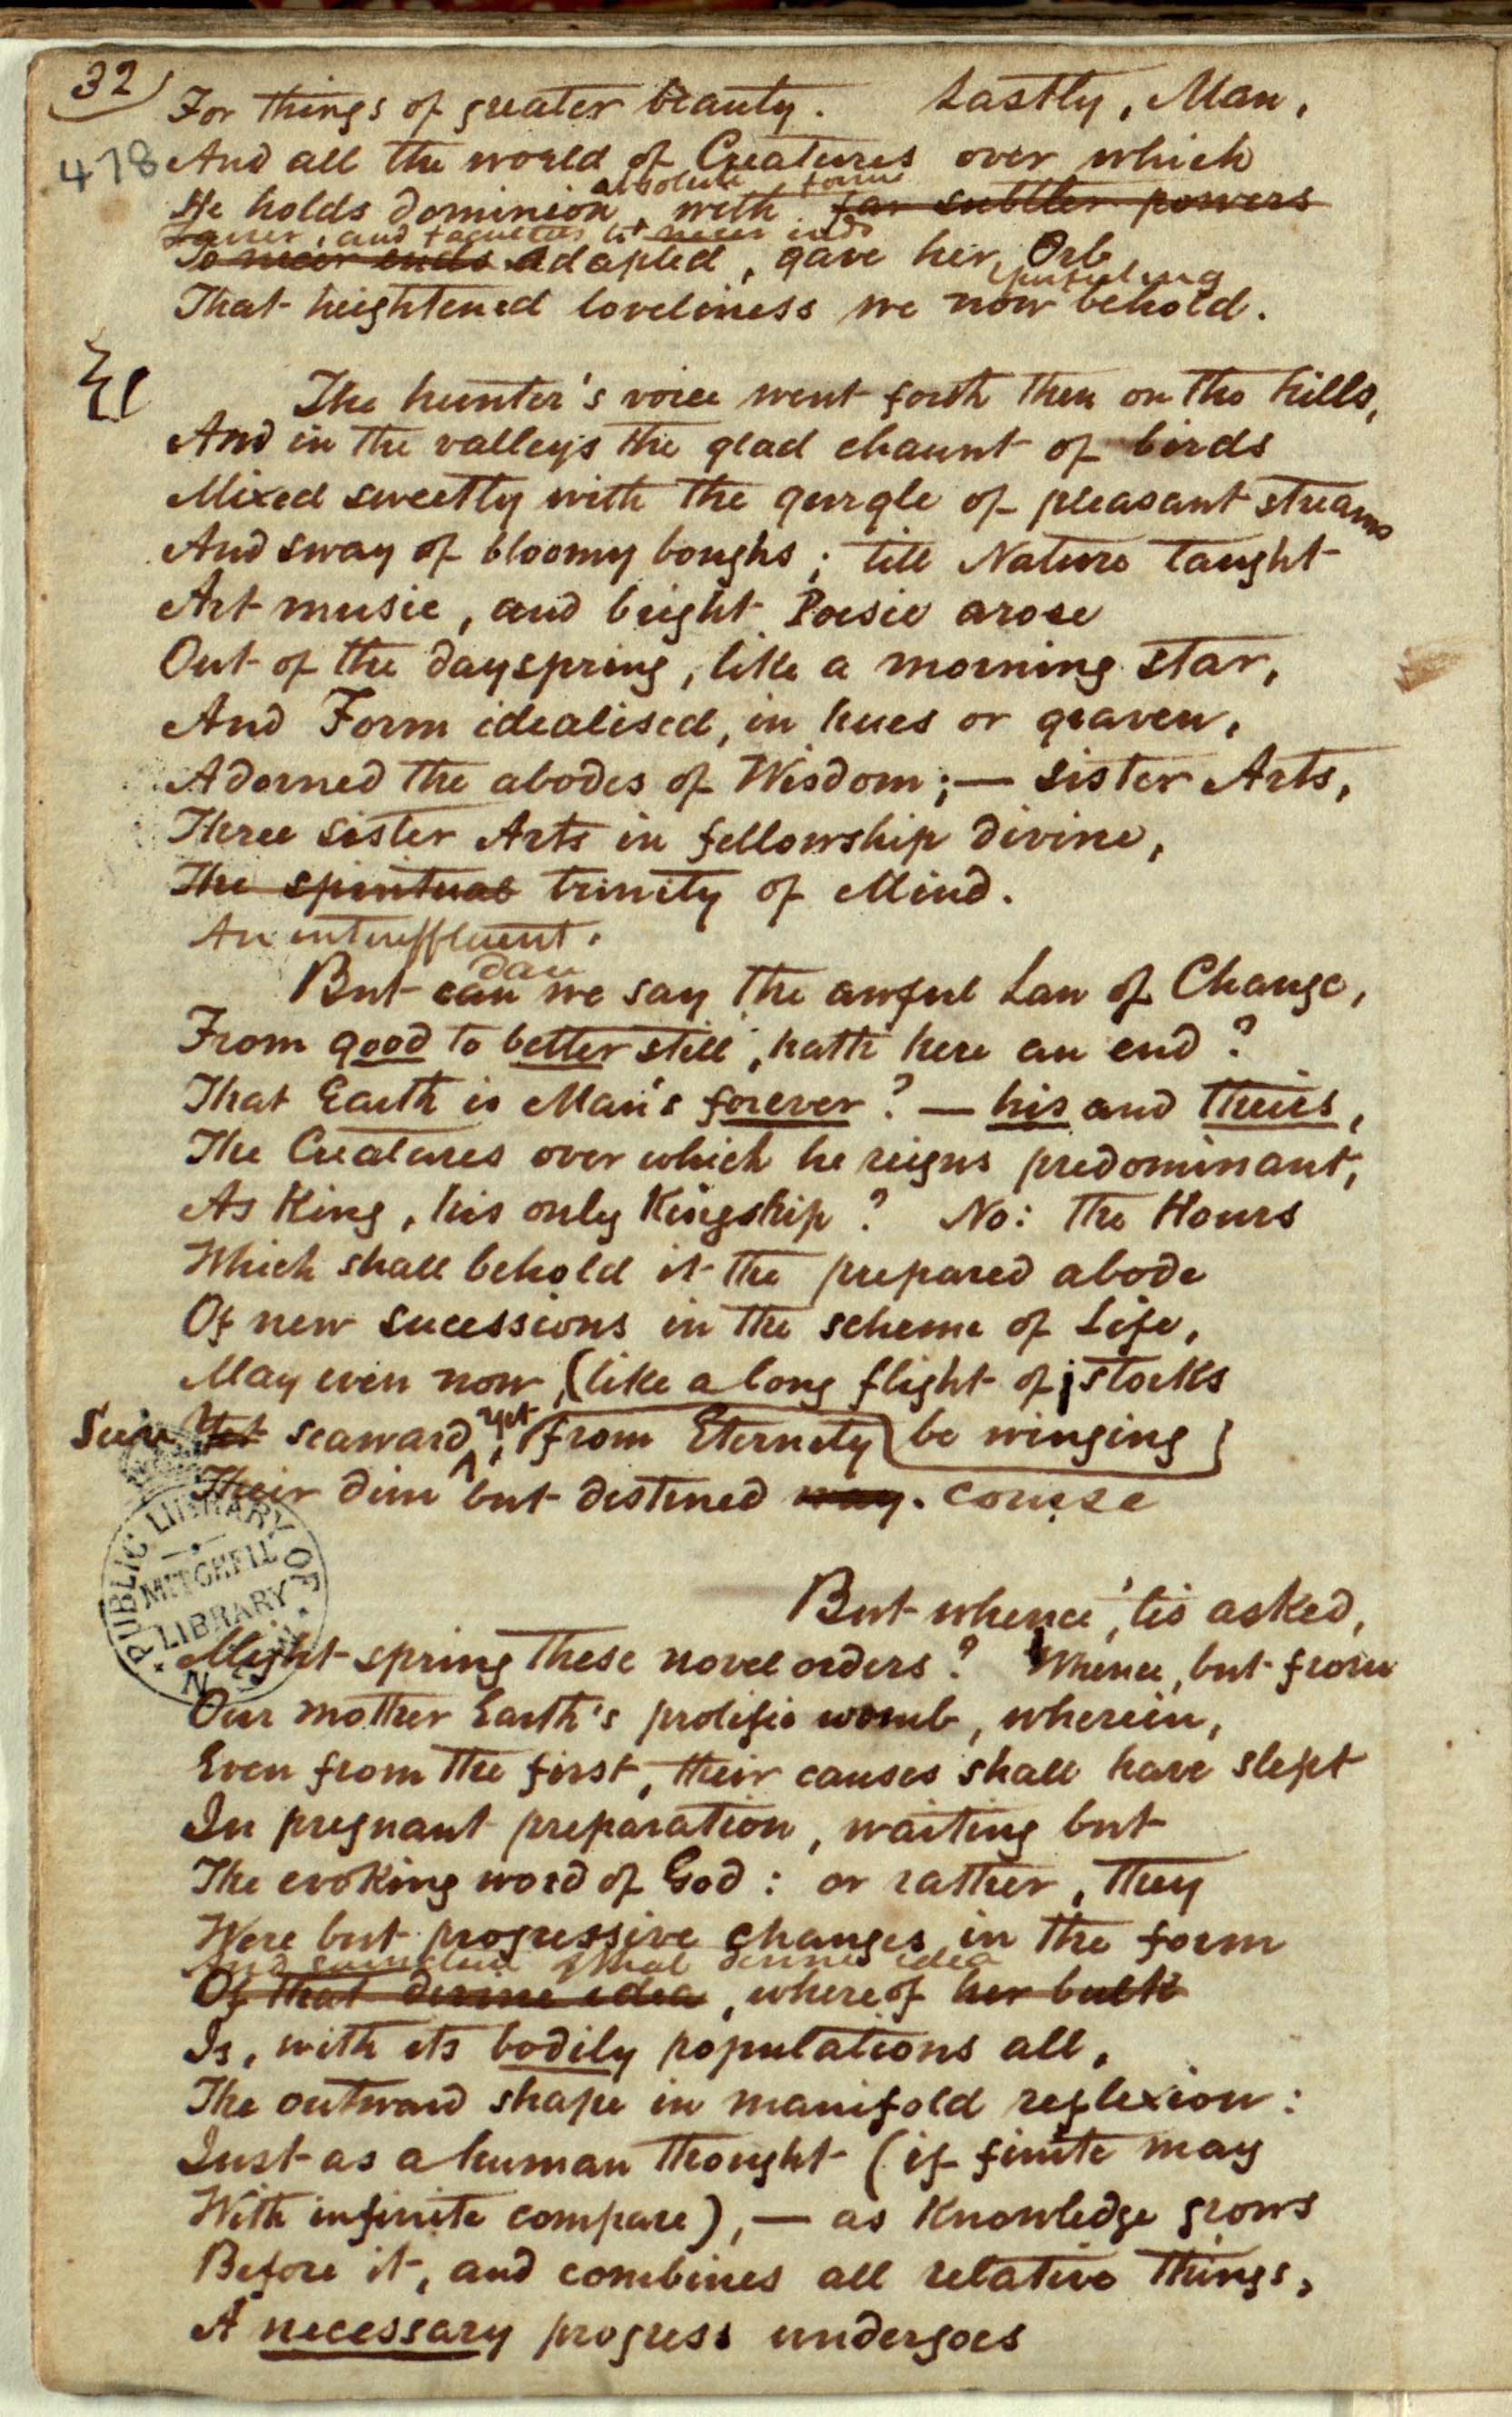 32
For things of greater beauty. Lastly, Man,
478 And all the world of Creatures over which
absolute, form
He holds dominion, with far subtler powers
and faculties to ends
To near ends adapted, gave her Orb
That heightened loveliness we now behold.
The hunter's voice went forth then on the hills,
And in the valleys the glad chaunt of birds
Mixed sweetly with the gurgle of pleasant streams
And sway of bloomy boughs; till Nature taught
Art music, and bright Poesie arose
Out of the dayspring, like a morning star,
And Form idealised, in hues or graven,
Adorned the abodes of Wisdom;— sister Arts,
Three sister Arts in fellowship divine,
The spiritual trinity of Mind.
An interffluent.
dau
But can we say the awful Law of Change,
From good to better still, hath here an end?
That Earth is Man's forever?— his and theirs,
The Creatures over which he reigns predominant,
As King, his only Kingship? No: The Hours
Which shall behold it the prepared abode
Of new sucessions in the scheme of Life,
May even now, (like a long flight of storks
Seen Yet seaward, yet from Eternity be winging
Their dim but destined way. course
But whence, 'tis asked,
Might spring these novel orders? Whence, but from
Our mother Earth's prolific womb, wherein,
Even from the first, their causes shall have slept
In pregnant preparation, waiting but
The evoking word of God: or rather, they
Were but progressive changes in the form
And of that divine idea
Of that divine idea, whereof her bulk
Is, with its bodily populations all,
The outward shape in manifold reflexion:
Just as a human thought (if finite may
With infinite compare),— as Knowledge grows
Before it, and combines all relative things,
A necessary progress undergoes
PUBLIC LIBRARY OF N.S.W.
MITCHELL
LIBRARY